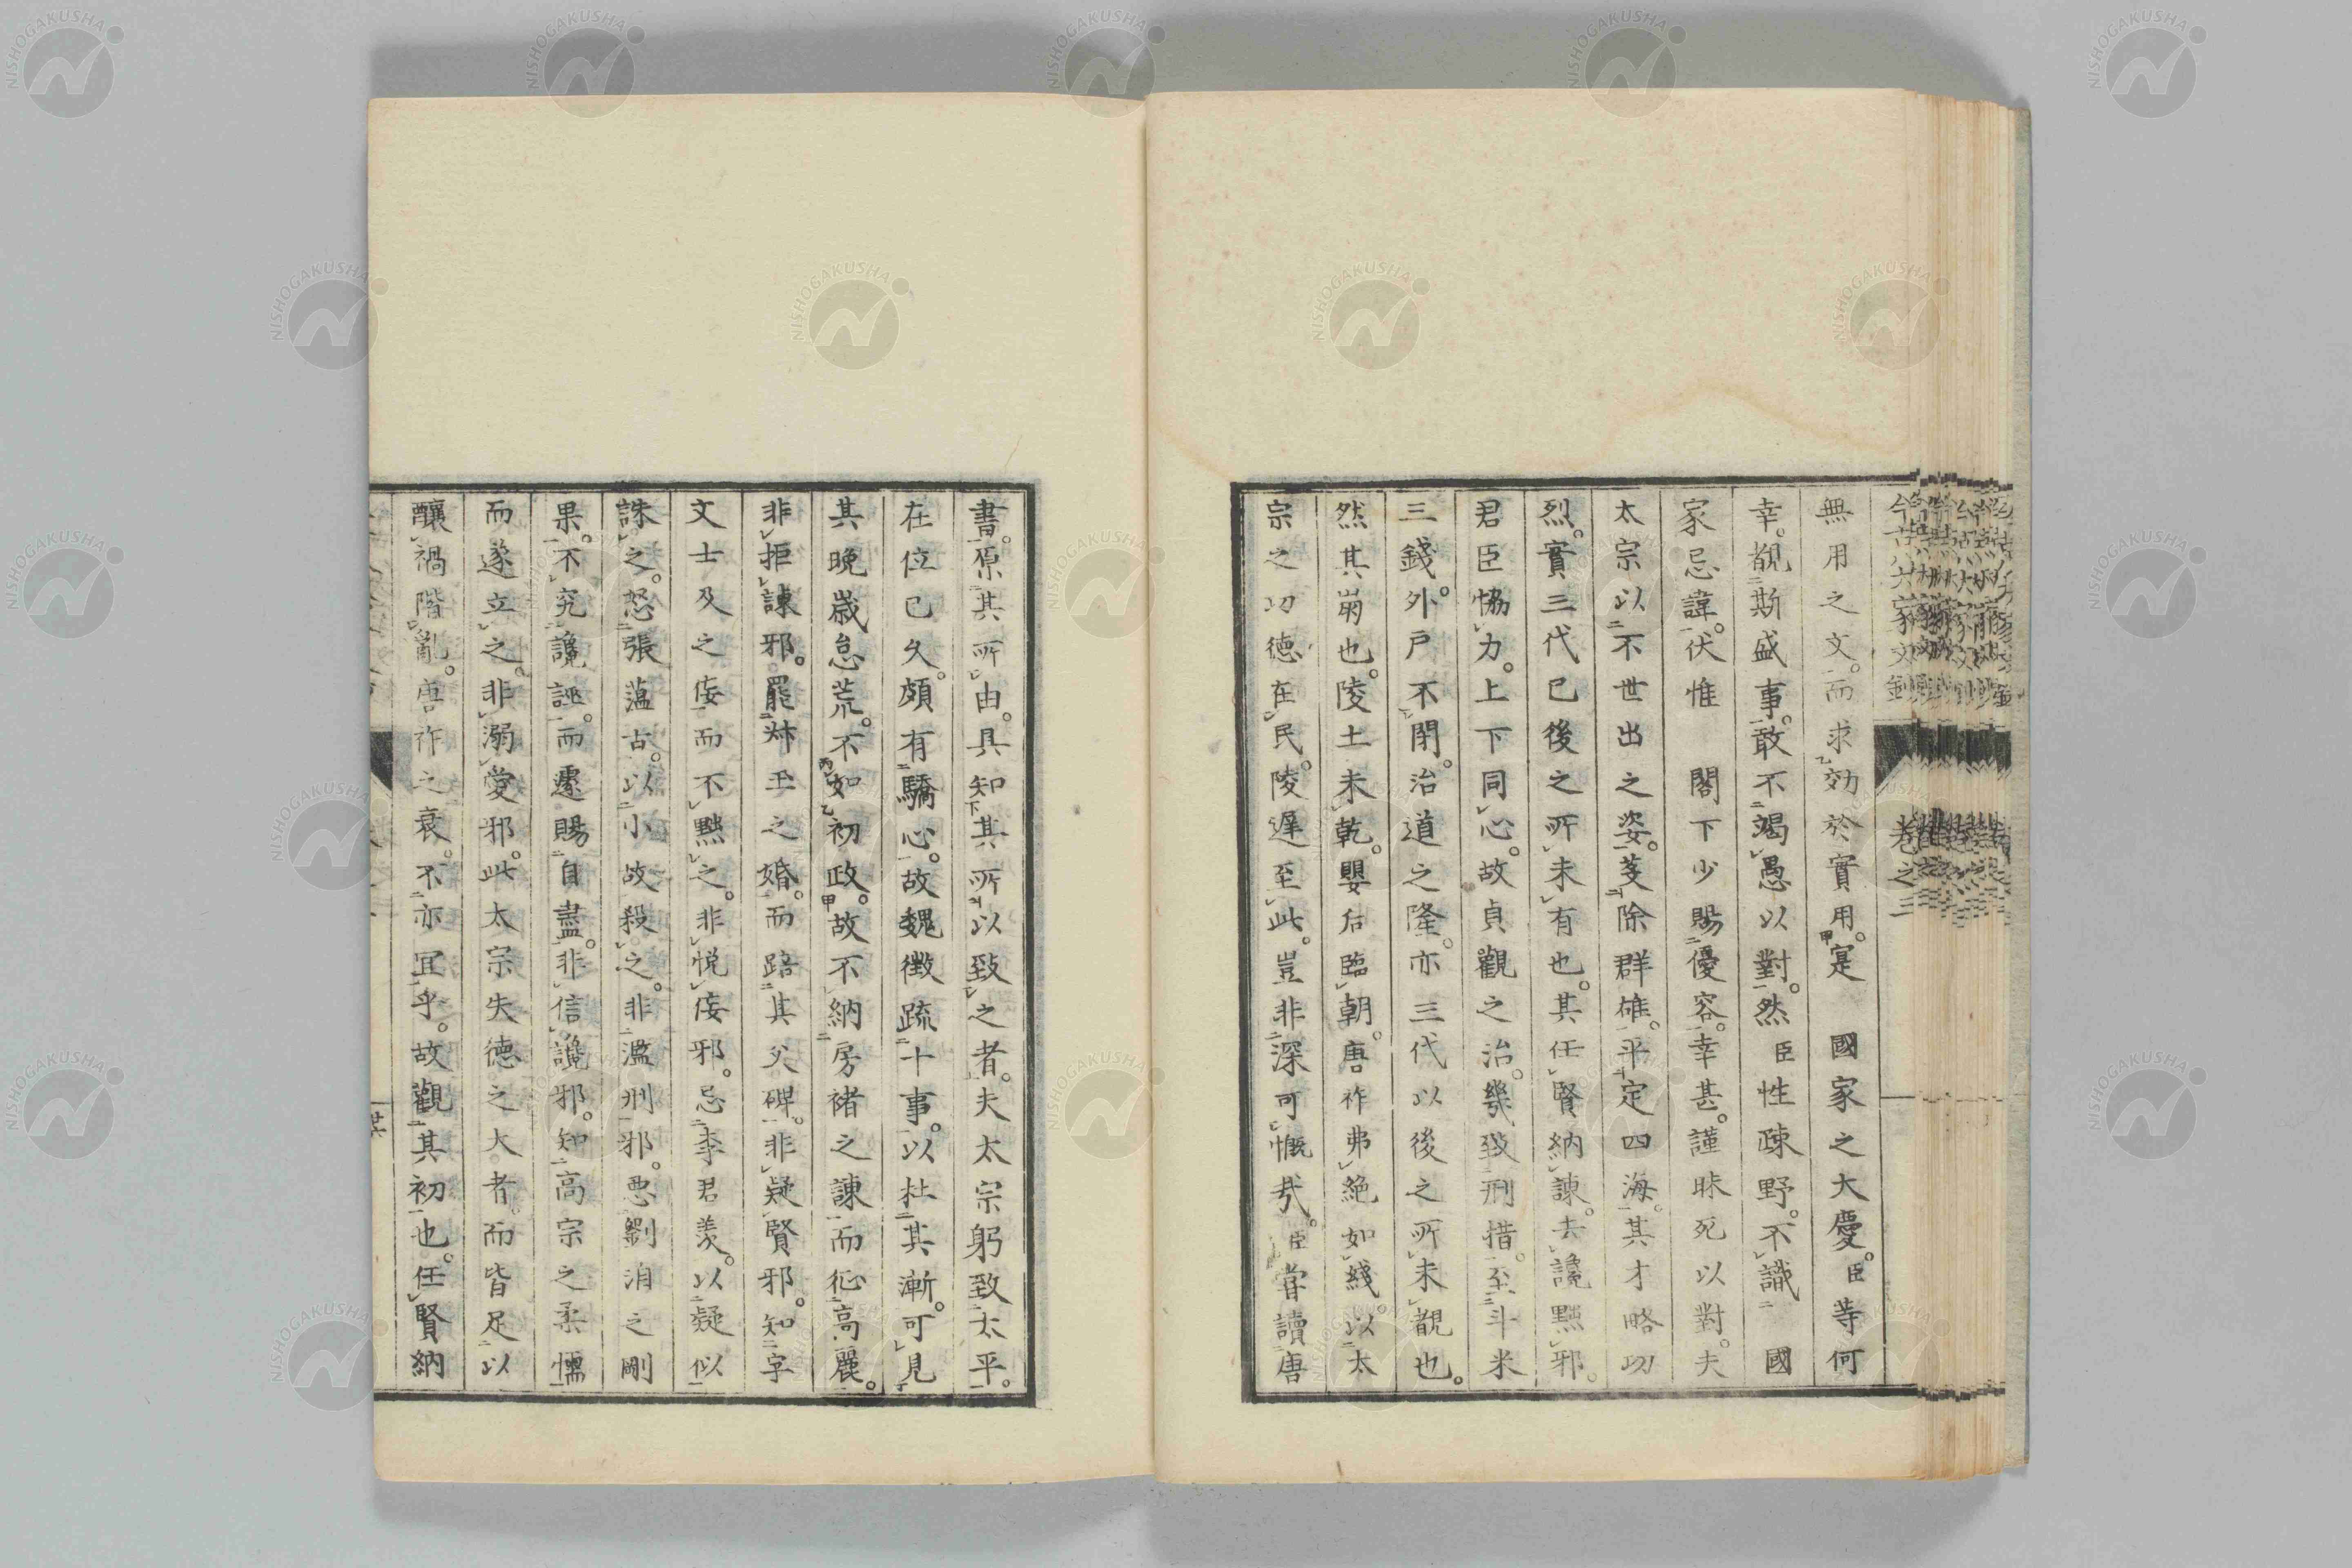 無用之文。而求効於實用。寔　國家之大慶。臣等何
幸。覩斯盛事。敢不竭愚以對。然臣性疎野。不識　國
家忌諱。伏惟　閣下少賜優容。幸甚。謹昧死以對。夫
太宗以不世出之姿。芟除群雄。平定四海。其才略功
烈。實三代已後之所未有也。其任賢納諌。去讒黜邪。
君臣恊力。上下同心。故貞觀之治。幾致刑措。至斗米
三錢。外戸不閉。治道之隆。亦三代以後之所未覩也。
然其崩也。陵土未乾。嬰后臨朝。唐祚弗絶如綫。以太
宗之功德在民。陵遲至此。豈非深可慨哉。臣甞讀唐
書。原其所由。具知其所以致之者。夫太宗躬致太平。
在位已久。頗有驕心。故魏徴疏十事。以杜其漸。可見
其晩歳怠荒。不如初政。故不納房褚之諌。而征高麗。
非拒諌邪。罷叔玉之婚。而踣其父碑。非疑賢邪。知宇
文士及之佞。而不黜之。非悦佞邪。忌李君羨。以疑似
誅之。怒張薀古。以小故殺之。非濫刑邪。惡劉洎之剛
果。不究讒誣。而遽賜自盡。非信讒邪。知高宗之柔懦
而遂立之。非溺愛邪。此太宗失德之大者。而皆足以
釀禍階亂。唐祚之衰。不亦宜乎。故觀其初也。任賢納
今古八大家文鈔　卷之三
NISHOGAKUSHA